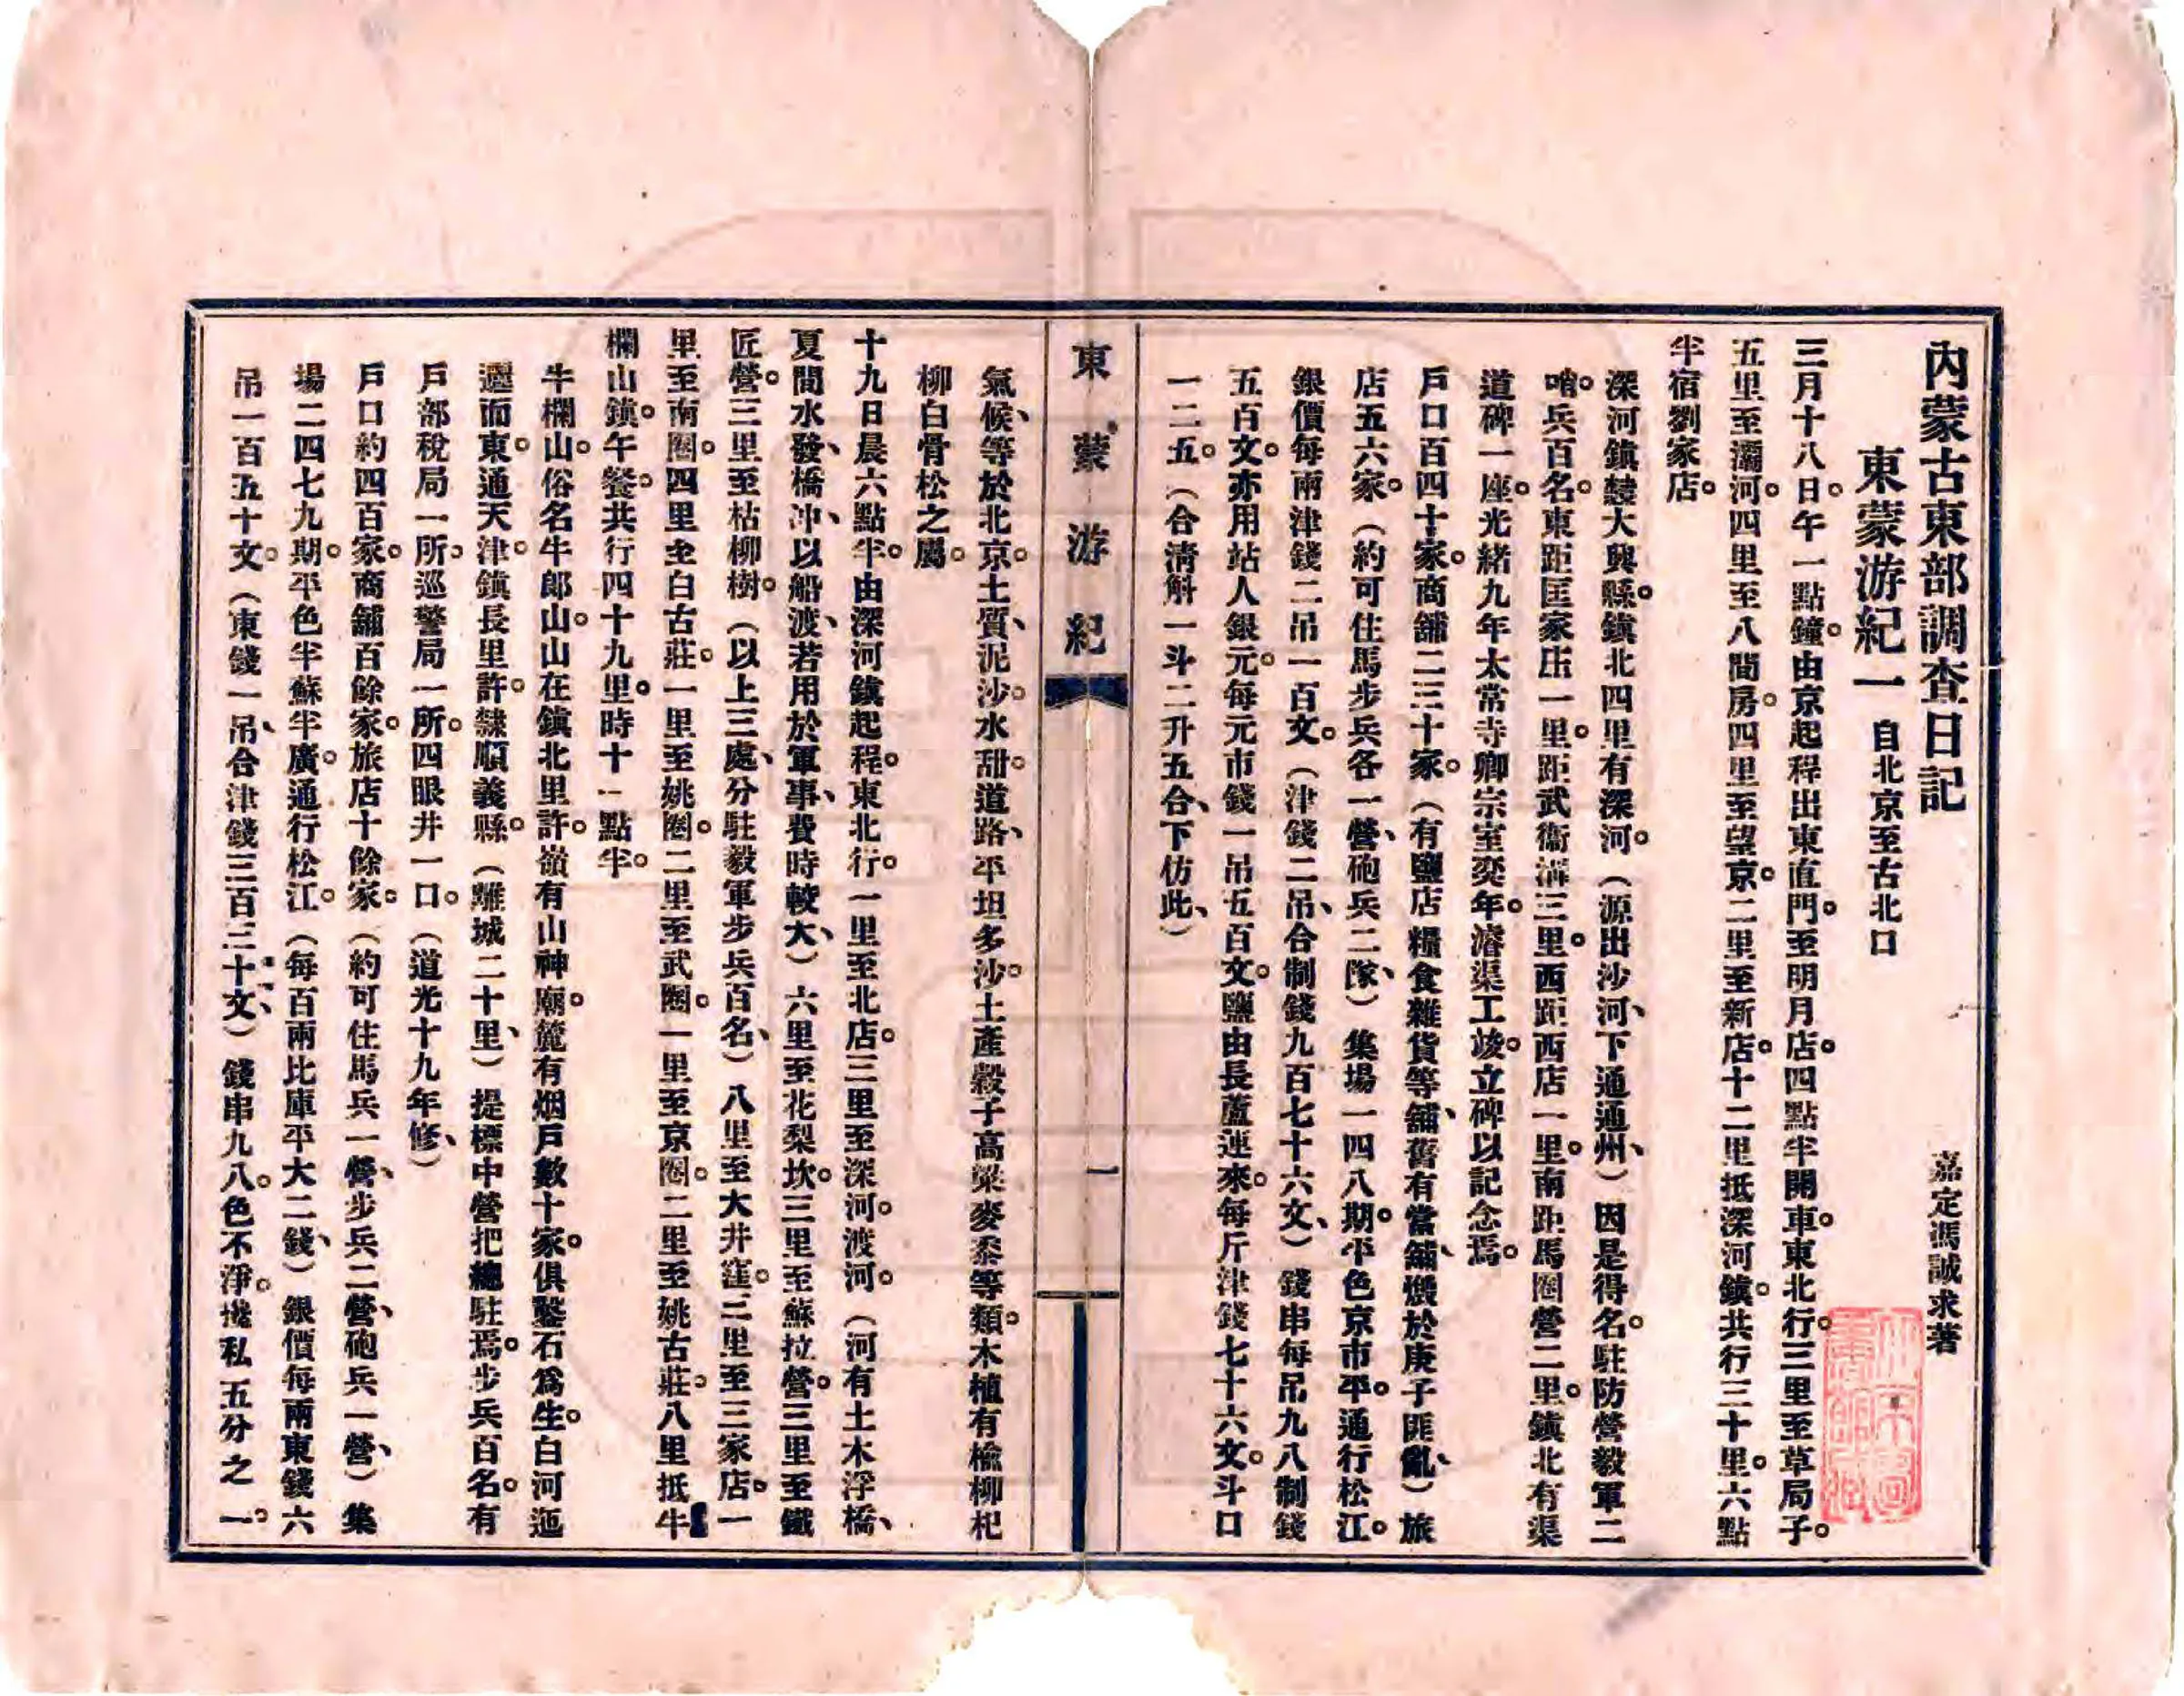 內蒙古東部調查日記
嘉定馮誠求著
東蒙游紀一 自北京至古北口
三月十八日。午一點鐘。由京起程出東直門。至明月店。四點半開車。東北行。三里至草局子。
五里至灞河。四里至八間房。四里至望京。二里至新店。十二里抵深河鎮。共行三十里。六點
半宿劉家店。
深河鎮隸大興縣。鎮北四里有深河。(源出沙河、下通通州、)因是得名。駐防營毅軍二
哨。兵百名。東距匡家庄一里。距武衛溝三里。西距西店一里。南距馬圈營二里。鎮北有渠
道碑一座。光緒九年太常寺卿宗室奕年。濬渠工竣。立碑以記念焉。
戶口百四十家。商舖二三十家。(有鹽店糧食雜貨等舖、舊有當舖、燬於庚子匪亂、)旅
店五六家。(約可住馬步兵各一營、砲兵二隊、)集場一四八期。平色京市平。通行松江。
銀價每兩津錢二吊一百文。(津錢二吊、合制錢九百七十六文、)錢串每吊九八制錢
五百文。亦用站人銀元。每元市錢一吊五百文。鹽由長蘆運來。每斤津錢七十六文。斗口
一二五。(合清斛一斗二升五合、下仿此、)
東蒙游紀
一
氣候、等於北京。土質、泥沙。水甜。道路、平坦多沙。土產穀子高粱麥黍等類。木植有楡柳杞
柳白骨松之屬。
十九日晨六點半。由深河鎮起程。東北行。一里至北店。三里至深河。渡河。(河有土木浮橋、
夏間水發、橋冲、以船渡、若用於軍事、費時較大、)六里至花梨坎。三里至蘇拉營。三里至鐵
匠營。三里至枯柳樹。(以上三處、分駐毅軍步兵百名、)八里至大井窪。二里至三家店。一
里至南圈。四里至白古莊。一里至姚圈。二里至武圈。一里至京圈。二里至姚古莊。八里抵牛
欄山鎮。午餐。共行四十九里。時十一點半。
牛欄山。俗名牛郎山。山在鎮北里許。嶺有山神廟。麓有烟戶數十家。俱鑿石爲生。白河迤
邐而東。通天津。鎮長里許。隸順義縣。(離城二十里、)提標中營把總駐焉。步兵百名。有
戶部稅局一所。巡警局一所。四眼井一口。(道光十九年修、)
戶口約四百家。商舖百餘家。旅店十餘家。(約可住馬兵一營、步兵二營、砲兵一營、)集
場二四七九期。平色半蘇半廣。通行松江。(每百兩比庫平大二錢、)銀價每兩東錢六
吊一百五十文。(東錢一吊、合津錢三百三十文、)錢串九八。色不淨。攙私五分之一。